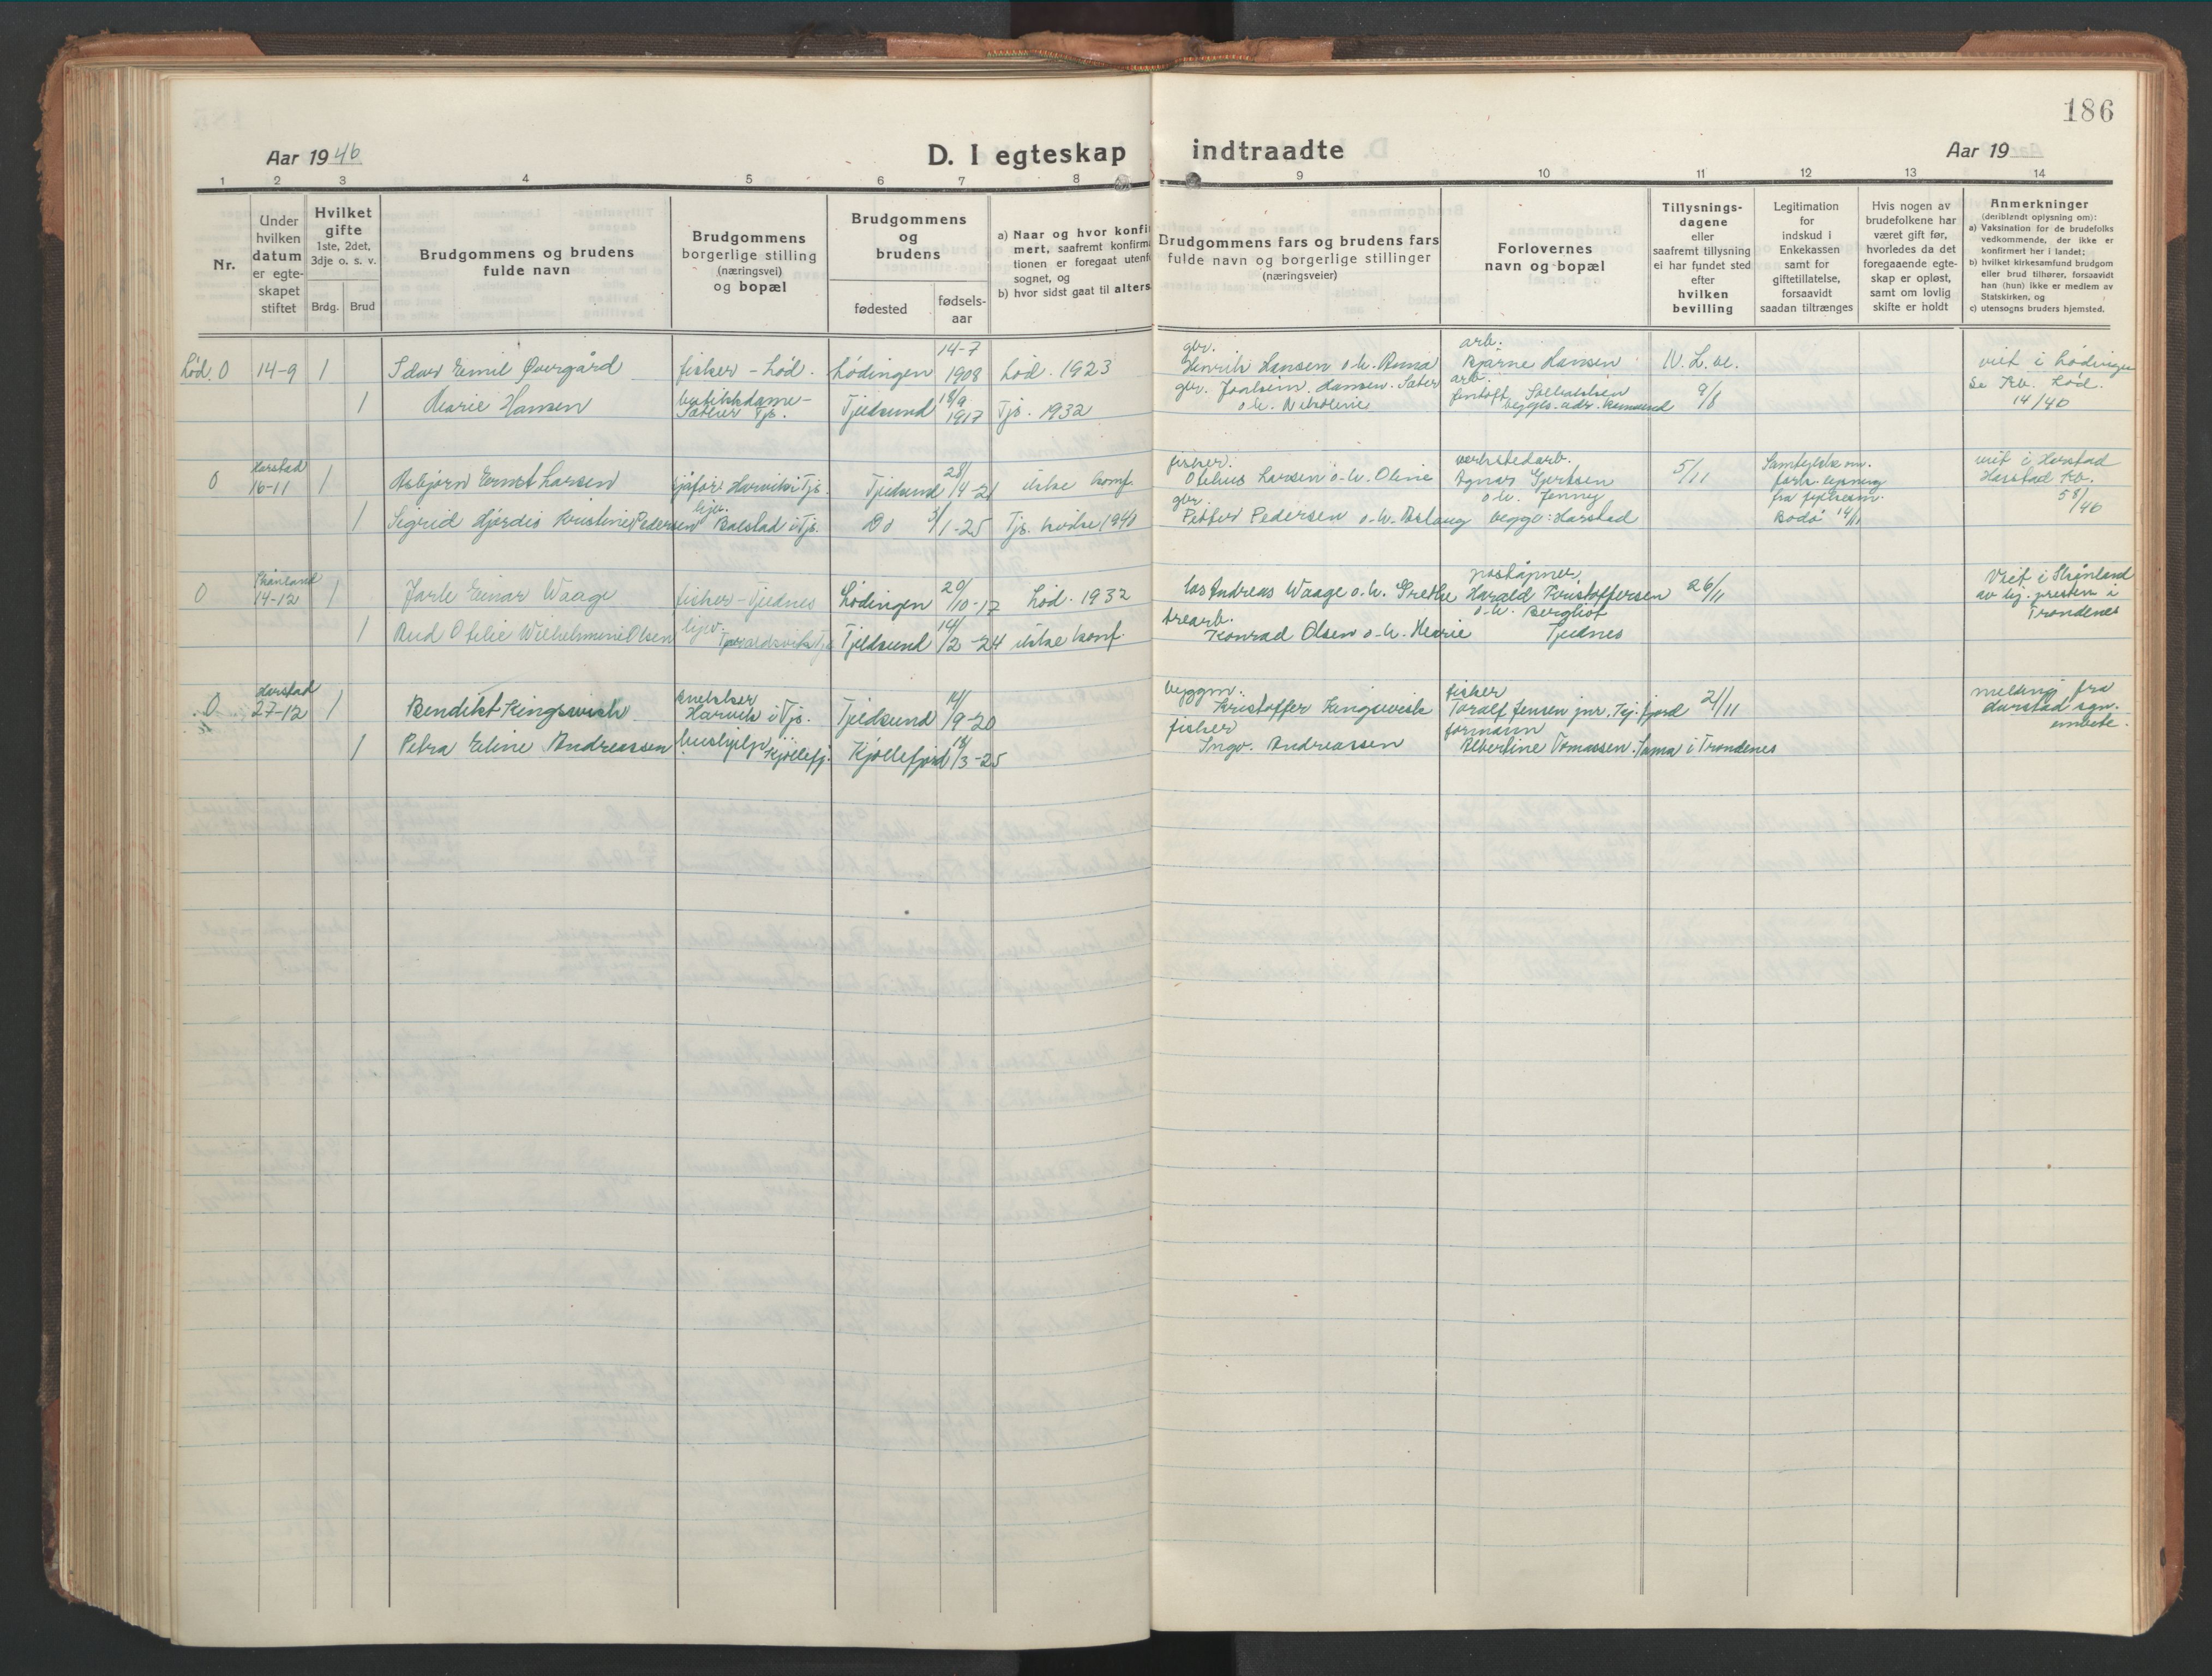 186
Aar 1946
D. I egteskap
indtraadte
Aar 19
1 2 3 4 5 6 7 8 9 10 11 12 13 14
Nr.
Under
hvilken
datum
er egte-
skapet
stiftet
Hvilket
gifte
1ste, 2det,
3dje o. s. v.
Brdg. Brud
Brudgommens og brudens
fulde navn
Brudgommens
borgerlige stilling
(næringsvei)
og bopæl
Brudgommens
og
brudens
fødested
fødsels-
aar
a) Naar og hvor konfi
mert, saafremt konfirma
tionen er foregaat utenf
sognet, og
b) hvor sidst gaat til alters
Brudgommens fars og brudens fars
fulde navn og borgerlige stillinger
(næringsveier)
Forlovernes
navn og bopæl
Tillysnings-
dagene
eller
saafremt tillysning
ei har fundet sted
efter
hvilken
bevilling
Legitimation
for
indskud i
Enkekassen
samt for
giftetillatelse,
forsaavidt
saadan tiltrænges
Hvis nogen av
brudefolkene har
været gift før,
hvorledes da det
foregaaende egte-
skap er opløst,
samt om lovlig
skifte er holdt
Anmerkninger
(deriblandt oplysning om):
a) Vaksination for de brudefolks
vedkommende, der ikke er
konfirmert her i landet;
b) hvilket kirkesamfund brudgom
eller brud tilhører, forsaavidt
han (hun) ikke er medlem av
Statskirken, og
c) utensogns bruders hjemsted.
Lød. O 14-9 1 Idar Emil Øvergård fisker - Lød. Lødingen 14-7 1908 Lød. 1923
gbr. Henrik Hansen o.h. Anna arb. Bjarne Hansen N. L. ve. viet i Lødingen
1 Marie Hansen butikkdame - Sæter Tjs. Tjeldsund 18/9 1917 Tjs. 1932
gbr. Joakim Hansen. Sæter o.h. Nikoline arb. begges adr. Ramsund 9/8 se Kb. Lød. 14/40
O Harstad 16-11 1 Asbjørn Ernst Larsen sjåfør Harvik i Tjs. Tjeldsund 28/4-21 ikke konf.
fisker. Otelius Larsen o.h. Oline verkstedarb. Agnar Gjertsen o.h. Jenney 5/11 viet i Harstad
Harstad Kb.
58/46
1 Sigrid Hjørdis Kristine Pedersen hjv. Balstad i Tjs. Do 3/1-25 Tjs. kirke 1940
gbr. Petter Pedersen o.h. Aslaug begge: Harstad Bodø 14/11
O Skånland 14-12 1 Jarle Einar Waage fisker - Tjeldnes Lødingen 20/10-17 Lød. 1932
Andreas Waage o.h. Grethe poståpner Harald Kristoffersen o.h. Bergliot 26/11 Viet i Skånland
av hj. presten i
Trondenes
1 Aud Otelie Wilhelmine Olsen hjv. Tjeldsund 14/2-24 ikke konf.
trearb. Konrad Olsen o.h. Marie Tjeldnes
O Harstad 27-12 1 Bendikt Kingsvik snekker Harvik i Tjs. Tjeldsund 14/9-20
byggm. Kristoffer Kingsvik fisker Toralf Jensen jnr. Kj. fjord 21/11 melding fra
1 Petra Eline Andreassen hushjelp Kjøllefj. Kjøllefjord 18/3-25
fisker Ingv. Andreassen formann Albertine Tomassen. Sama i Trondenes
embete.